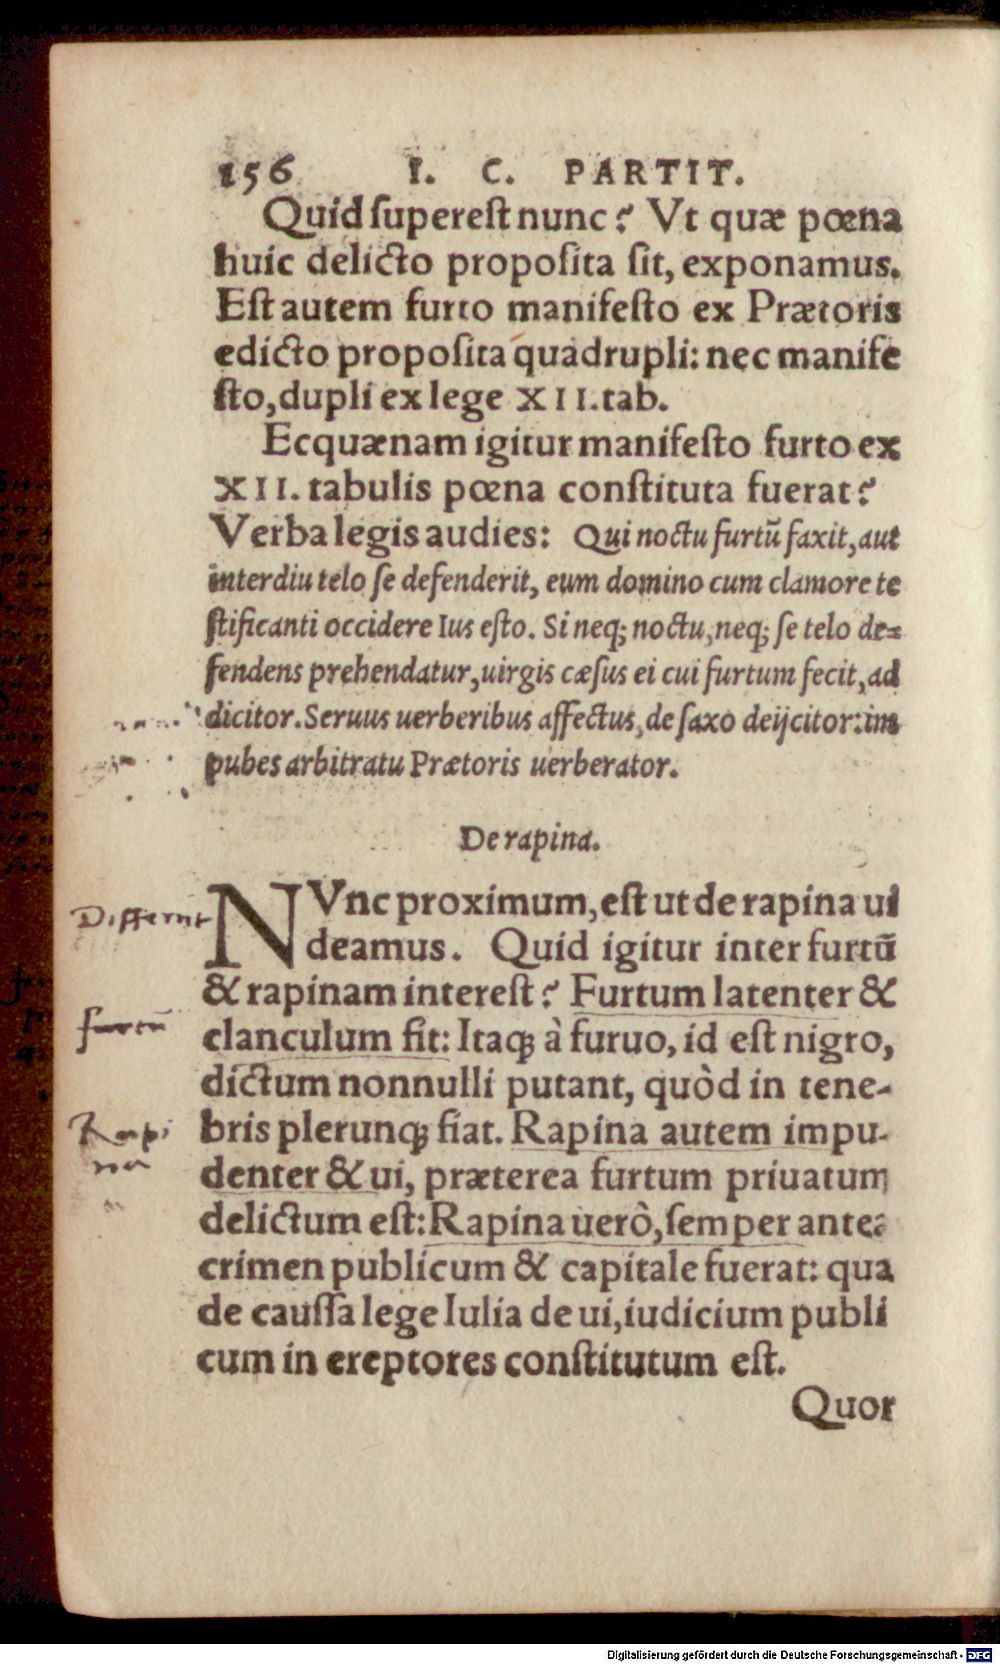 156 I. C. PARTIT.
Quid ſupereſt nunc? Vt quæ pœna
huic delicto propoſita ſit, exponamus.
Eſt autem furto manifeſto ex Prætoris
edicto propoſita quadrupli: nec manife
ſto, dupli ex lege XII. tab.
Ecquænam igitur manifeſto furto ex
XII. tabulis pœna conſtituta fuerat?
Verba legis audies: Qui noctu furtũ faxit, aut
interdiu telo ſe defenderit, eum domino cum clamore te
ſtificanti occidere Ius eſto. Si neq; noctu, neq; ſe telo de=
fendens prehendatur, uirgis cæſus ei cui furtum fecit, ad
dicitor. Seruus uerberibus affectus, de ſaxo deijcitor: im
pubes arbitratu Prætoris uerberator.
De rapina.
NVnc proximum, eſt ut de rapina ui
deamus. Quid igitur inter furtũ
& rapinam intereſt? Furtum latenter &
clanculum fit: Itaq; à furuo, id eſt nigro,
dictum nonnulli putant, quòd in tene-
bris plerunq; fiat. Rapina autem impu-
denter & ui, præterea furtum priuatum
delictum eſt: Rapina uerò, ſemper antea
crimen publicum & capitale fuerat: qua
de cauſſa lege Iulia de ui, iudicium publi
cum in ereptores conſtitutum eſt.
Quor
Differunt
furtũ
Rapi
na
Digitalisierung gefördert durch die Deutsche Forschungsgemeinschaft - DFG